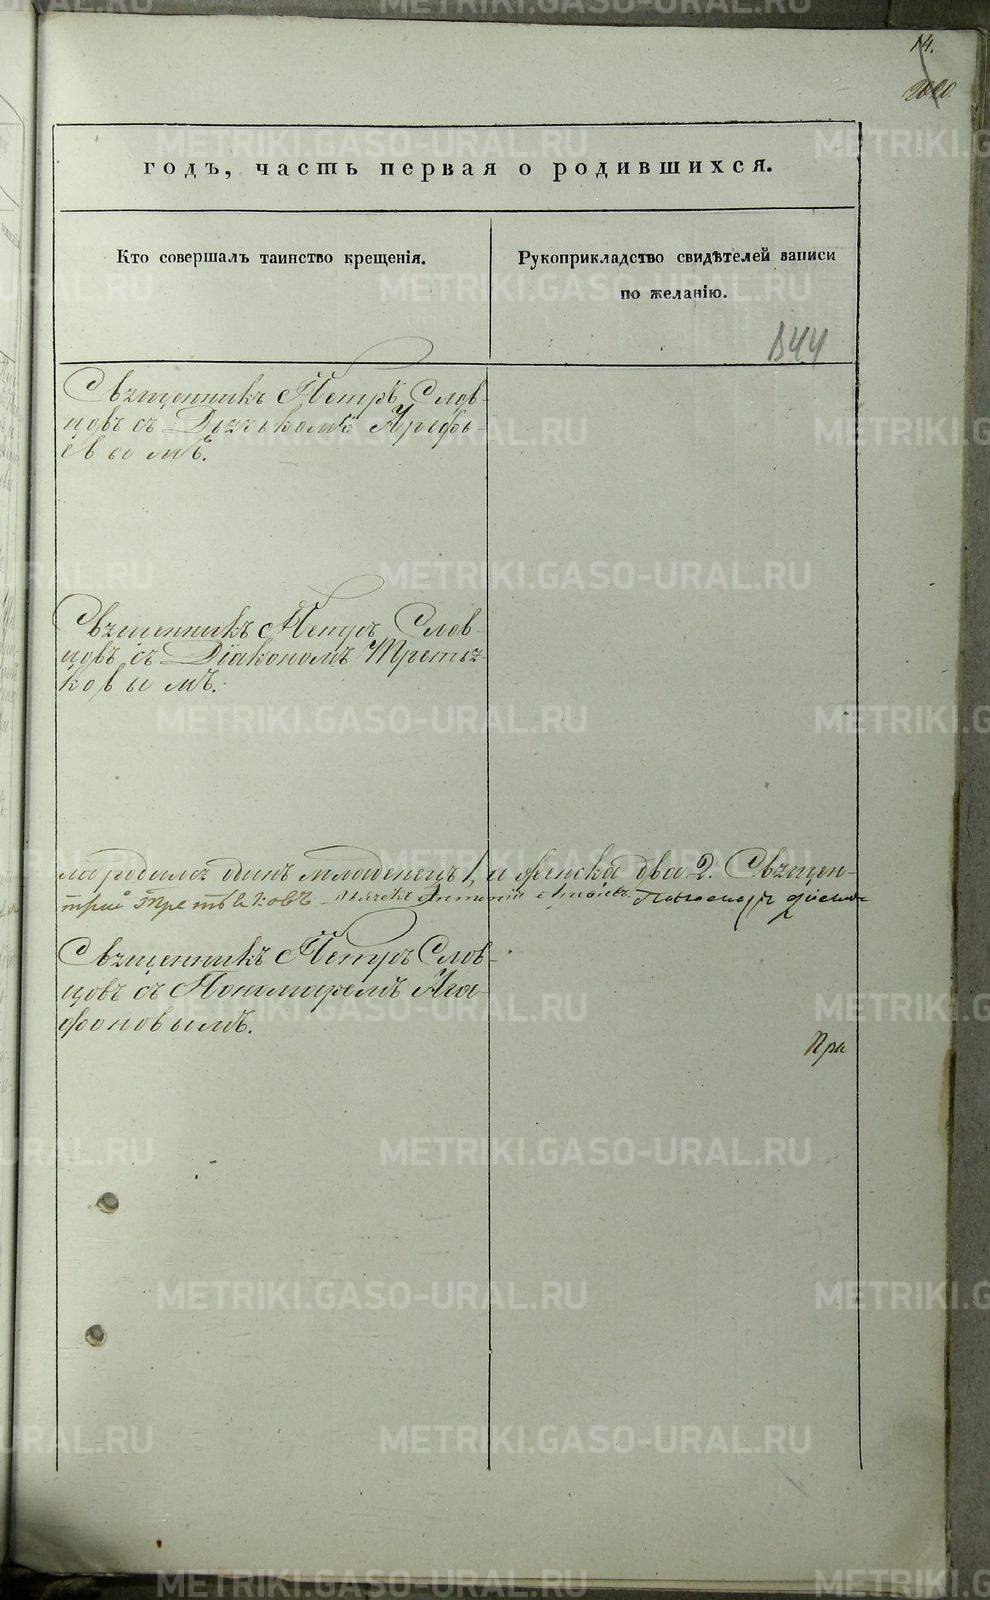 14.
годъ, часть первая о родившихся.
Кто совершалъ таинство крещенія.
Рукоприкладство свидѣтелей записи
по желанію.
Священникъ Петръ Слов-
цовъ съ Дьякомъ Арефь-
евымъ.
Священникъ Петръ Слов-
цовъ съ Діакономъ Третья-
ковымъ.
родился одинъ младенецъ 1, и женска два 2. Священ-
Третьяковъ
Священникъ Петръ Слов-
цовъ съ Пономаремъ Ага-
фоновымъ.
При
METRIKI.GASO-URAL.RU